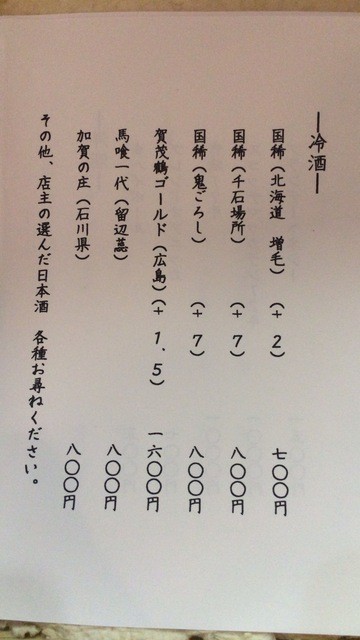 ―冷酒―
国稀（北海道　増毛）（＋２）　七〇〇円
国稀（千石場所）　（＋７）　八〇〇円
国稀（鬼ごろし）　（＋７）　八〇〇円
賀茂鶴ゴールド（広島）（＋１.５）　一六〇〇円
馬喰一代（留辺蘂）　八〇〇円
加賀の庄（石川県）　八〇〇円
その他、店主の選んだ日本酒　各種お尋ねください。